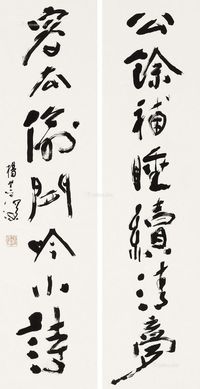 公餘補睡續清夢
客去偷閒吟小詩
楊善深